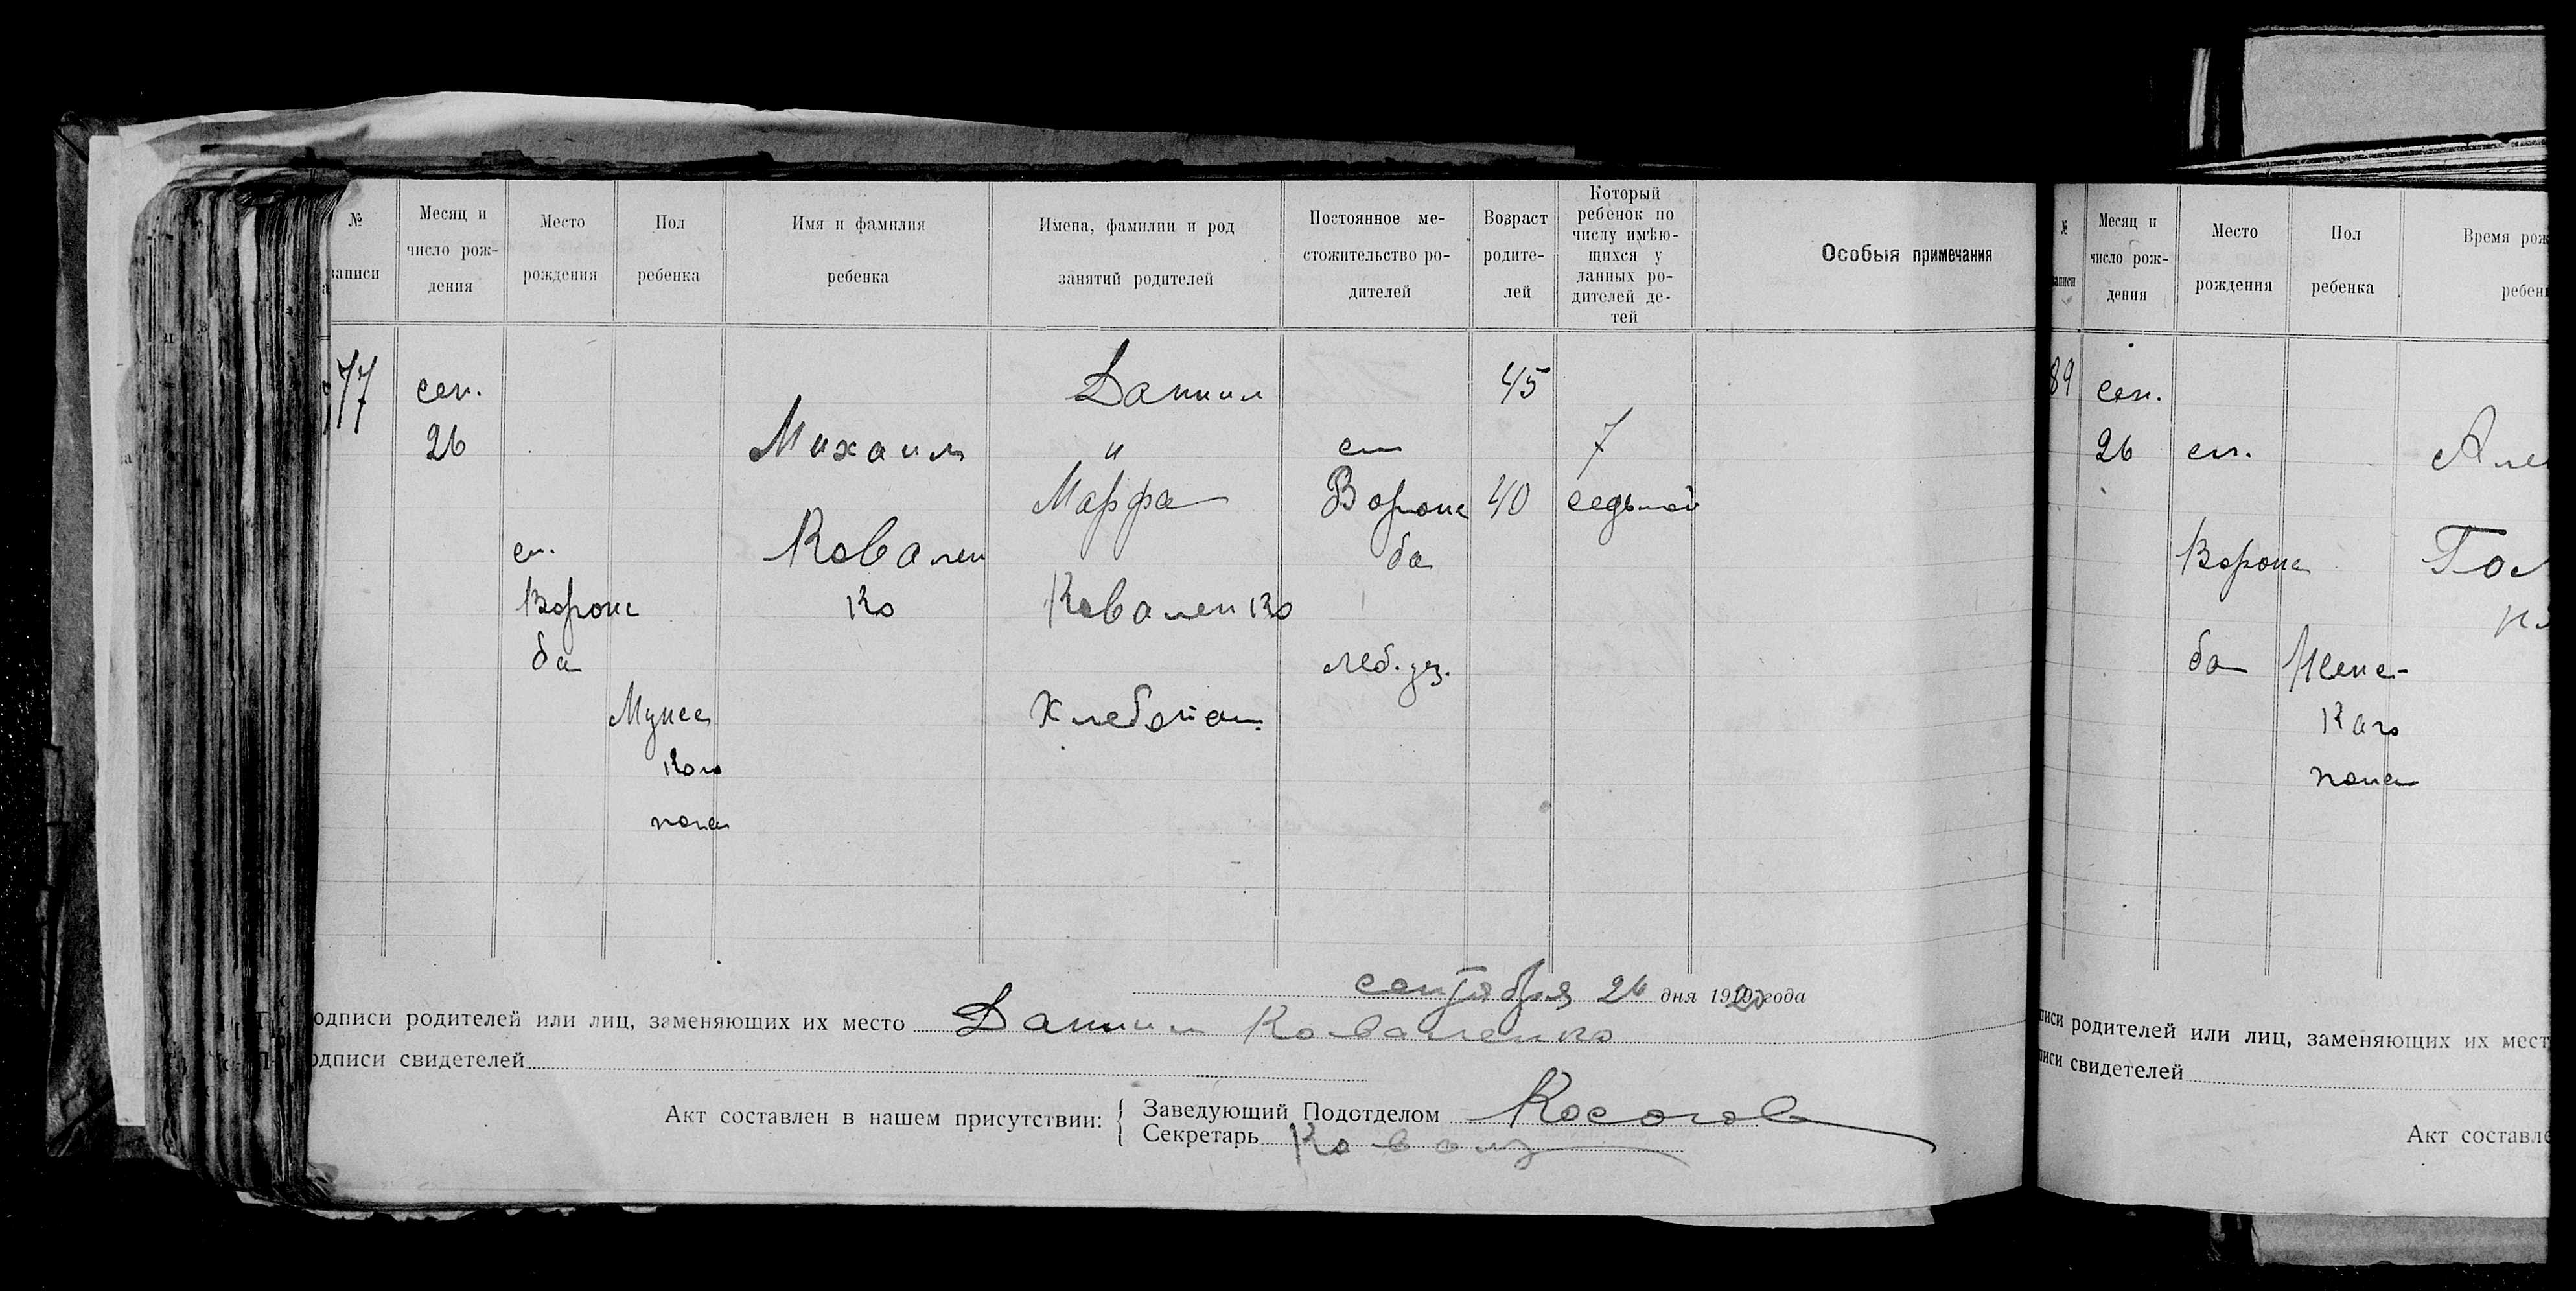 № записи
Месяц и число рождения
Место рождения
Пол ребенка
Имя и фамилия ребенка
Имена, фамилии и род занятий родителей
Постоянное ме-
стожительство ро-
дителей
Возраст
родите-
лей
Который
ребенок по
числу имѣю-
щихся у
данных ро-
дителей де-
тей
Особыя примечания
77
сен.
26
сл.
Ворож
ба
Мужс
кого
пола
Михаил
Ковален
ко
Даниил
и
Марфа
Коваленко
Хлебопаш.
сл.
Ворож
ба
Леб. уз.
45
40
7
седьмой
сентября 26 дня 1920 года
одписи родителей или лиц, заменяющих их место Даниил Коваленко
одписи свидетелей
Акт составлен в нашем присутствии:
Заведующий Подотделом
Секретарь
№
Месяц и
число рож-
дения
Место
рождения
Пол
ребенка
Время рож
ребен
89
сен.
26
сл.
Ворож
ба
Женс-
каго
пола
Але
Гол
иси родителей или лиц, заменяющих их мест
иси свидетелей
Акт составле